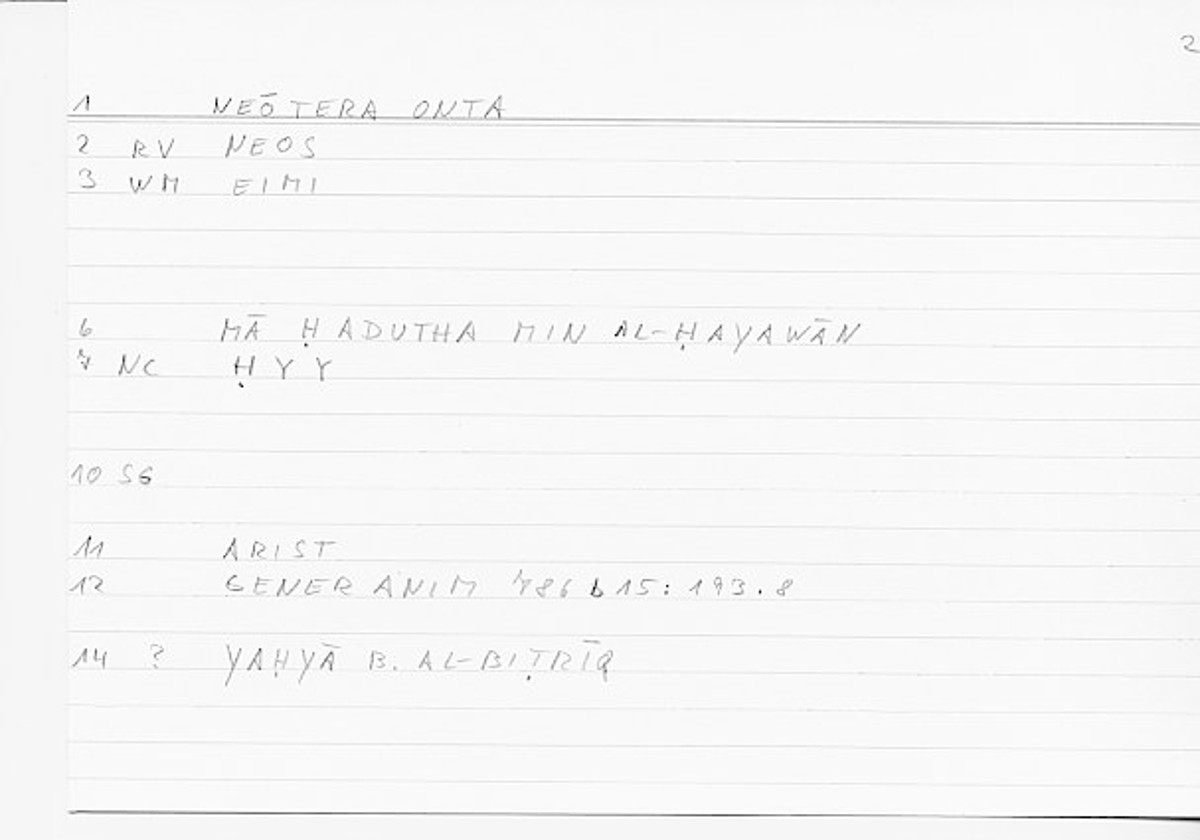 2
1 NEŌTERA ONTA
2 RV NEOS
3 WM EIMI
6 MĀ ḤADUTHA MIN AL-ḤAYAWĀN
7 NC ḤYY
10 SG
11 ARIST
12 GENER ANIM 786b15: 193.8
14 ? YAḤYĀ B. AL-BIṬRĪQ